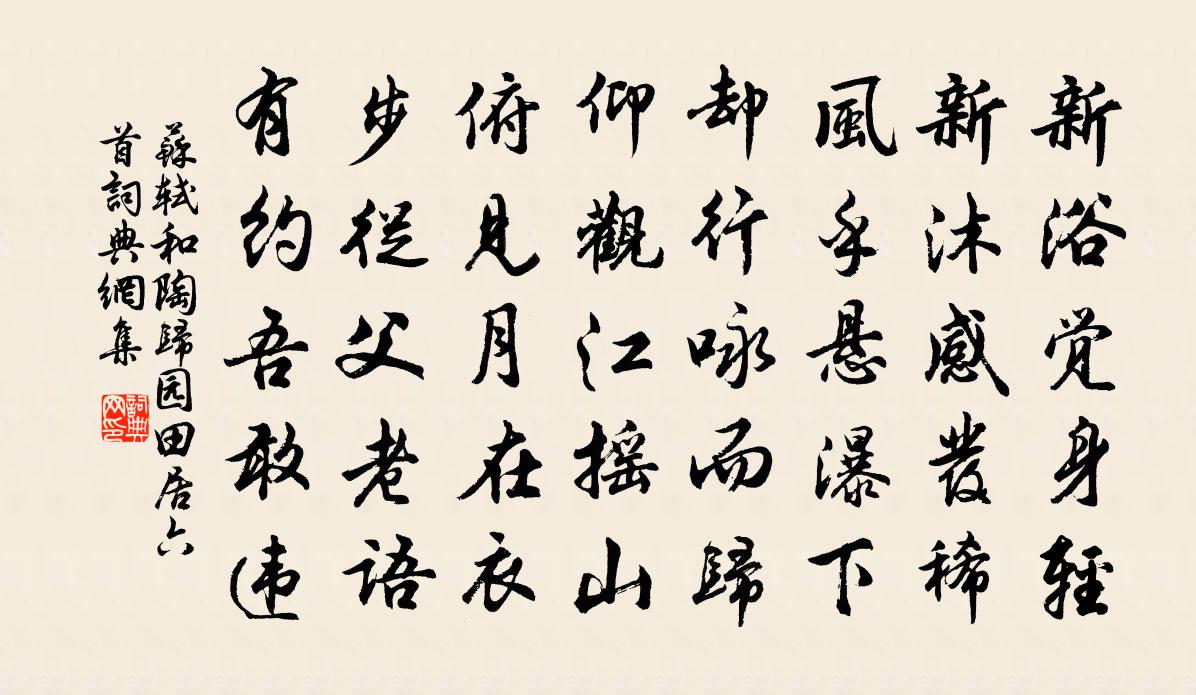 新浴觉身輕
新沐感發稀
風乎悬瀑下
却行咏而歸
仰觀江摇山
俯見月在衣
步從父老語
有約吾敢违
蘇轼和陶歸园田居六
首詞典網集
詞典网印